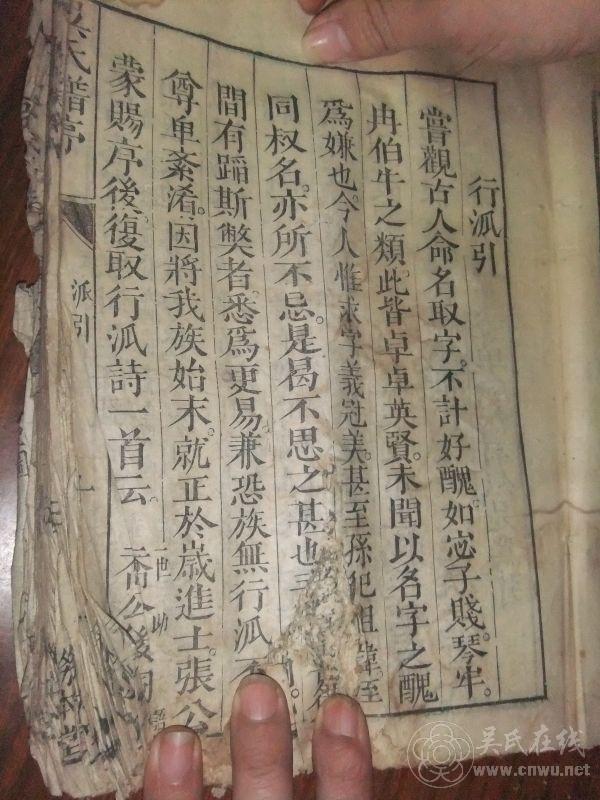 行派引
嘗觀古人命名取字。不計好醜。如宓子賤。琴牢。
冉伯牛之類。此皆卓卓英賢。未聞以名字之醜
爲嫌也。今人惟求字義冠美。甚至孫犯祖諱。至
同叔名。亦所不忌。是曷不思之甚也
間有蹈斯獘者。悉爲更易。兼恐族無行派
尊卑紊淆。因將我族始末。就正於歲進士。張公
蒙賜序後。復取行派詩一首云。
一世 助
喬公後
吳氏譜序
派引
吴氏在线
www.cnwu.net